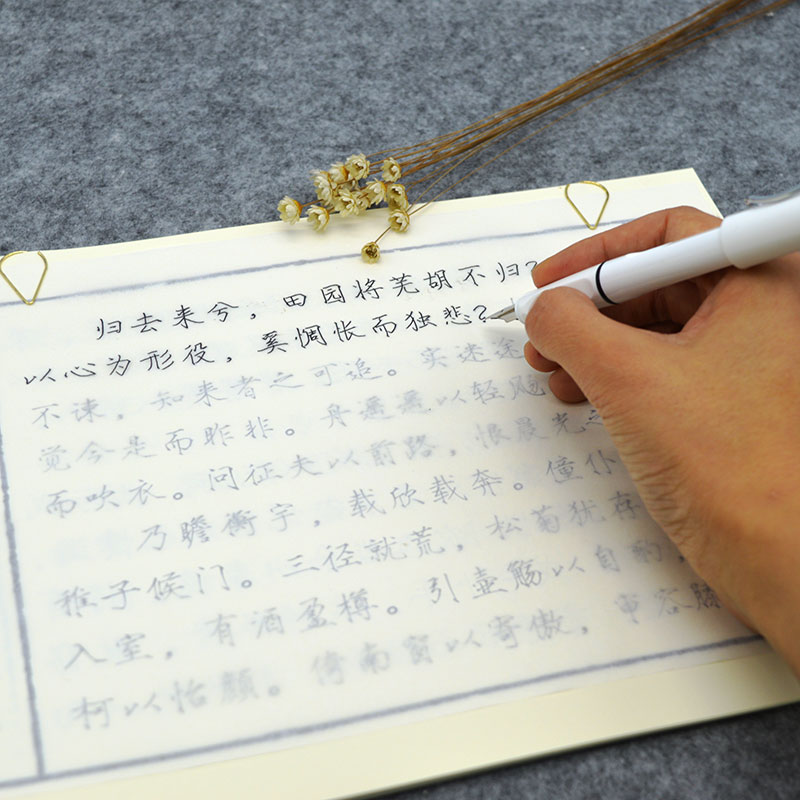 归去来兮，田园将芜胡不归？
以心为形役，奚惆怅而独悲？
不谏，知来者之可追。实迷途
觉今是而昨非。舟遥遥以轻飏
而吹衣。问征夫以前路，恨晨光之
乃瞻衡宇，载欣载奔。僮仆
稚子候门。三径就荒，松菊犹存
入室，有酒盈樽。引壶觞以自酌，
柯以怡颜。倚南窗以寄傲，审容膝